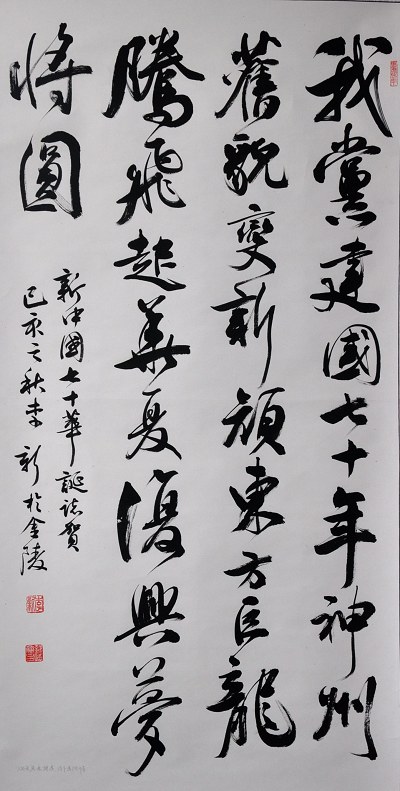 我黨建國七十年神州
舊貌變新顏東方巨龍
騰飛起華夏復興夢
將圓
新中國七十華誕誌賀
己亥之秋李新於金陵